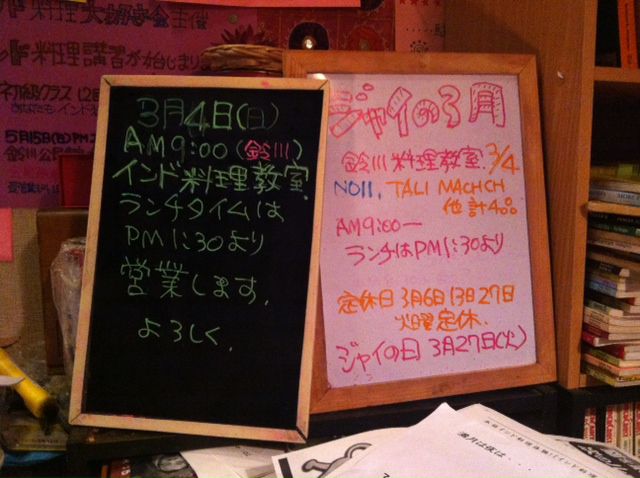 料理大好き会主催
ンド料理講習が始まりま
初級クラス
5月15日(日)PM
3月4日(日)
AM9:00(鈴川)
インド料理教室
ランチタイムは
PM1:30より
営業します.
よろしく.
ジャイの3月
鈴川料理教室.3/4
NO11. TALI MACHCH
他計4品
AM9:00ー
ランチはPM1:30より
定休日3月6日13日27日
火曜定休.
ジャイの日 3月27日(火)
来月は夜は・・・